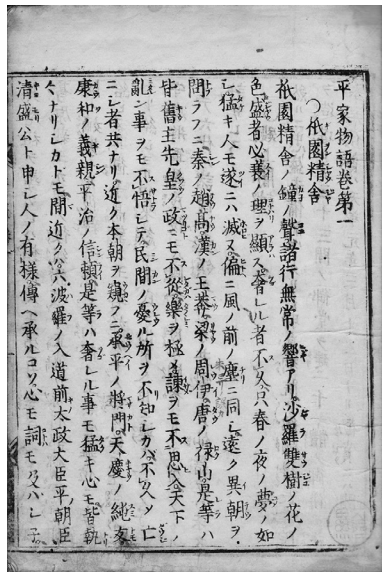 平家物語卷第一
祇園精舎
祇園精舎ノ鐘ノ聲諸行無常ノ響アリ沙羅雙樹ノ花ノ
色盛者必衰ノ理ヲ顯ス奢レル者不久只春ノ夜ノ夢ノ如
シ猛キ人モ遂ニハ滅ヌ偏ニ風ノ前ノ塵ニ同シ遠ク異朝ヲ
問ラフニ秦ノ趙高漢ノ王莽梁ノ周伊唐ノ禄山是等ハ
皆舊主先皇ノ政ニモ不從樂ヲ極メ諫ヲモ不思入天下ノ
亂ン事ヲモ不悟シテ民間ノ憂ル所ヲ不知シカハ不久〆亡
ニシ者共ナリ近ク本朝ヲ窺フニ承平ノ將門天慶ノ純友
康和ノ義親平治ノ信頼是等ハ奢レル事モ猛キ心モ皆執
々ナリシカトモ間近クハ六波羅ノ入道前太政大臣平ノ朝臣
清盛公ト申シ人ノ有様傳ヘ承ルコソ心モ詞モ及ハレ子